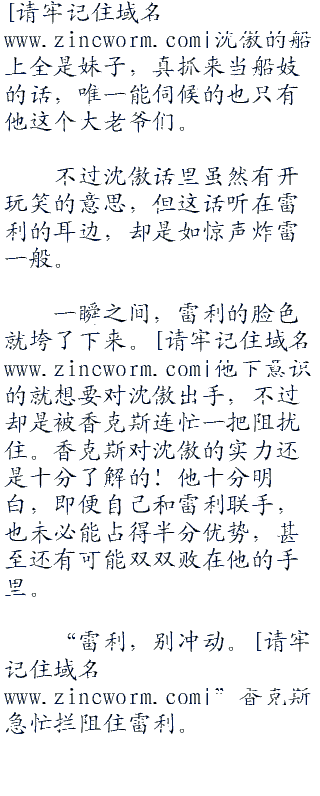 [请牢记住域名
www.zincworm.com|沈傲的船
上全是妹子，真抓来当船妓
的话，唯一能伺候的也只有
他这个大老爷们。
不过沈傲话里虽然有开
玩笑的意思，但这话听在雷
利的耳边，却是如惊声炸雷
一般。
一瞬之间，雷利的脸色
就垮了下来。[请牢记住域名
www.zincworm.com|他下意识
的就想要对沈傲出手，不过
却是被香克斯连忙一把阻扰
住。香克斯对沈傲的实力还
是十分了解的！他十分明
白，即便自己和雷利联手，
也未必能占得半分优势，甚
至还有可能双双败在他的手
里。
“雷利，别冲动。[请牢
记住域名
www.zincworm.com|”香克斯
急忙拦阻住雷利。